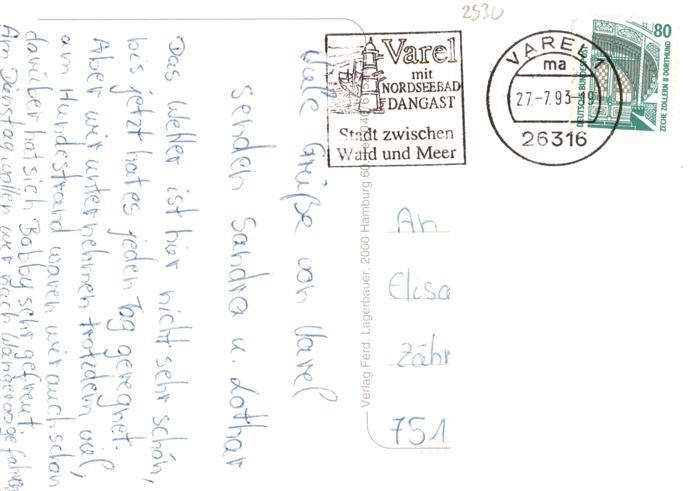 2530
Varel
mit
NORDSEEBAD
DANGAST
Stadt zwischen
Wald und Meer
VAREL 1
ma
27.-7.93-
26316
80
DEUTSCHE BUNDESPOST
ZECHE ZOLLERN II DORTMUND
Viele Grüße von Varel
senden Sandra u. Lothar
Das Wetter ist hier nicht sehr schön,
bis jetzt hat es jeden Tag geregnet.
Aber wir unternehmen trotzdem viel,
am Hundestrand waren wir auch schon
darüber hat sich Bobby sehr gefreut.
Am Dienstag wollen wir nach Wangerooge fahren
Verlag Ferd. Lagerbauer, 2000 Hamburg 60
An
Elisa
Zähr
751